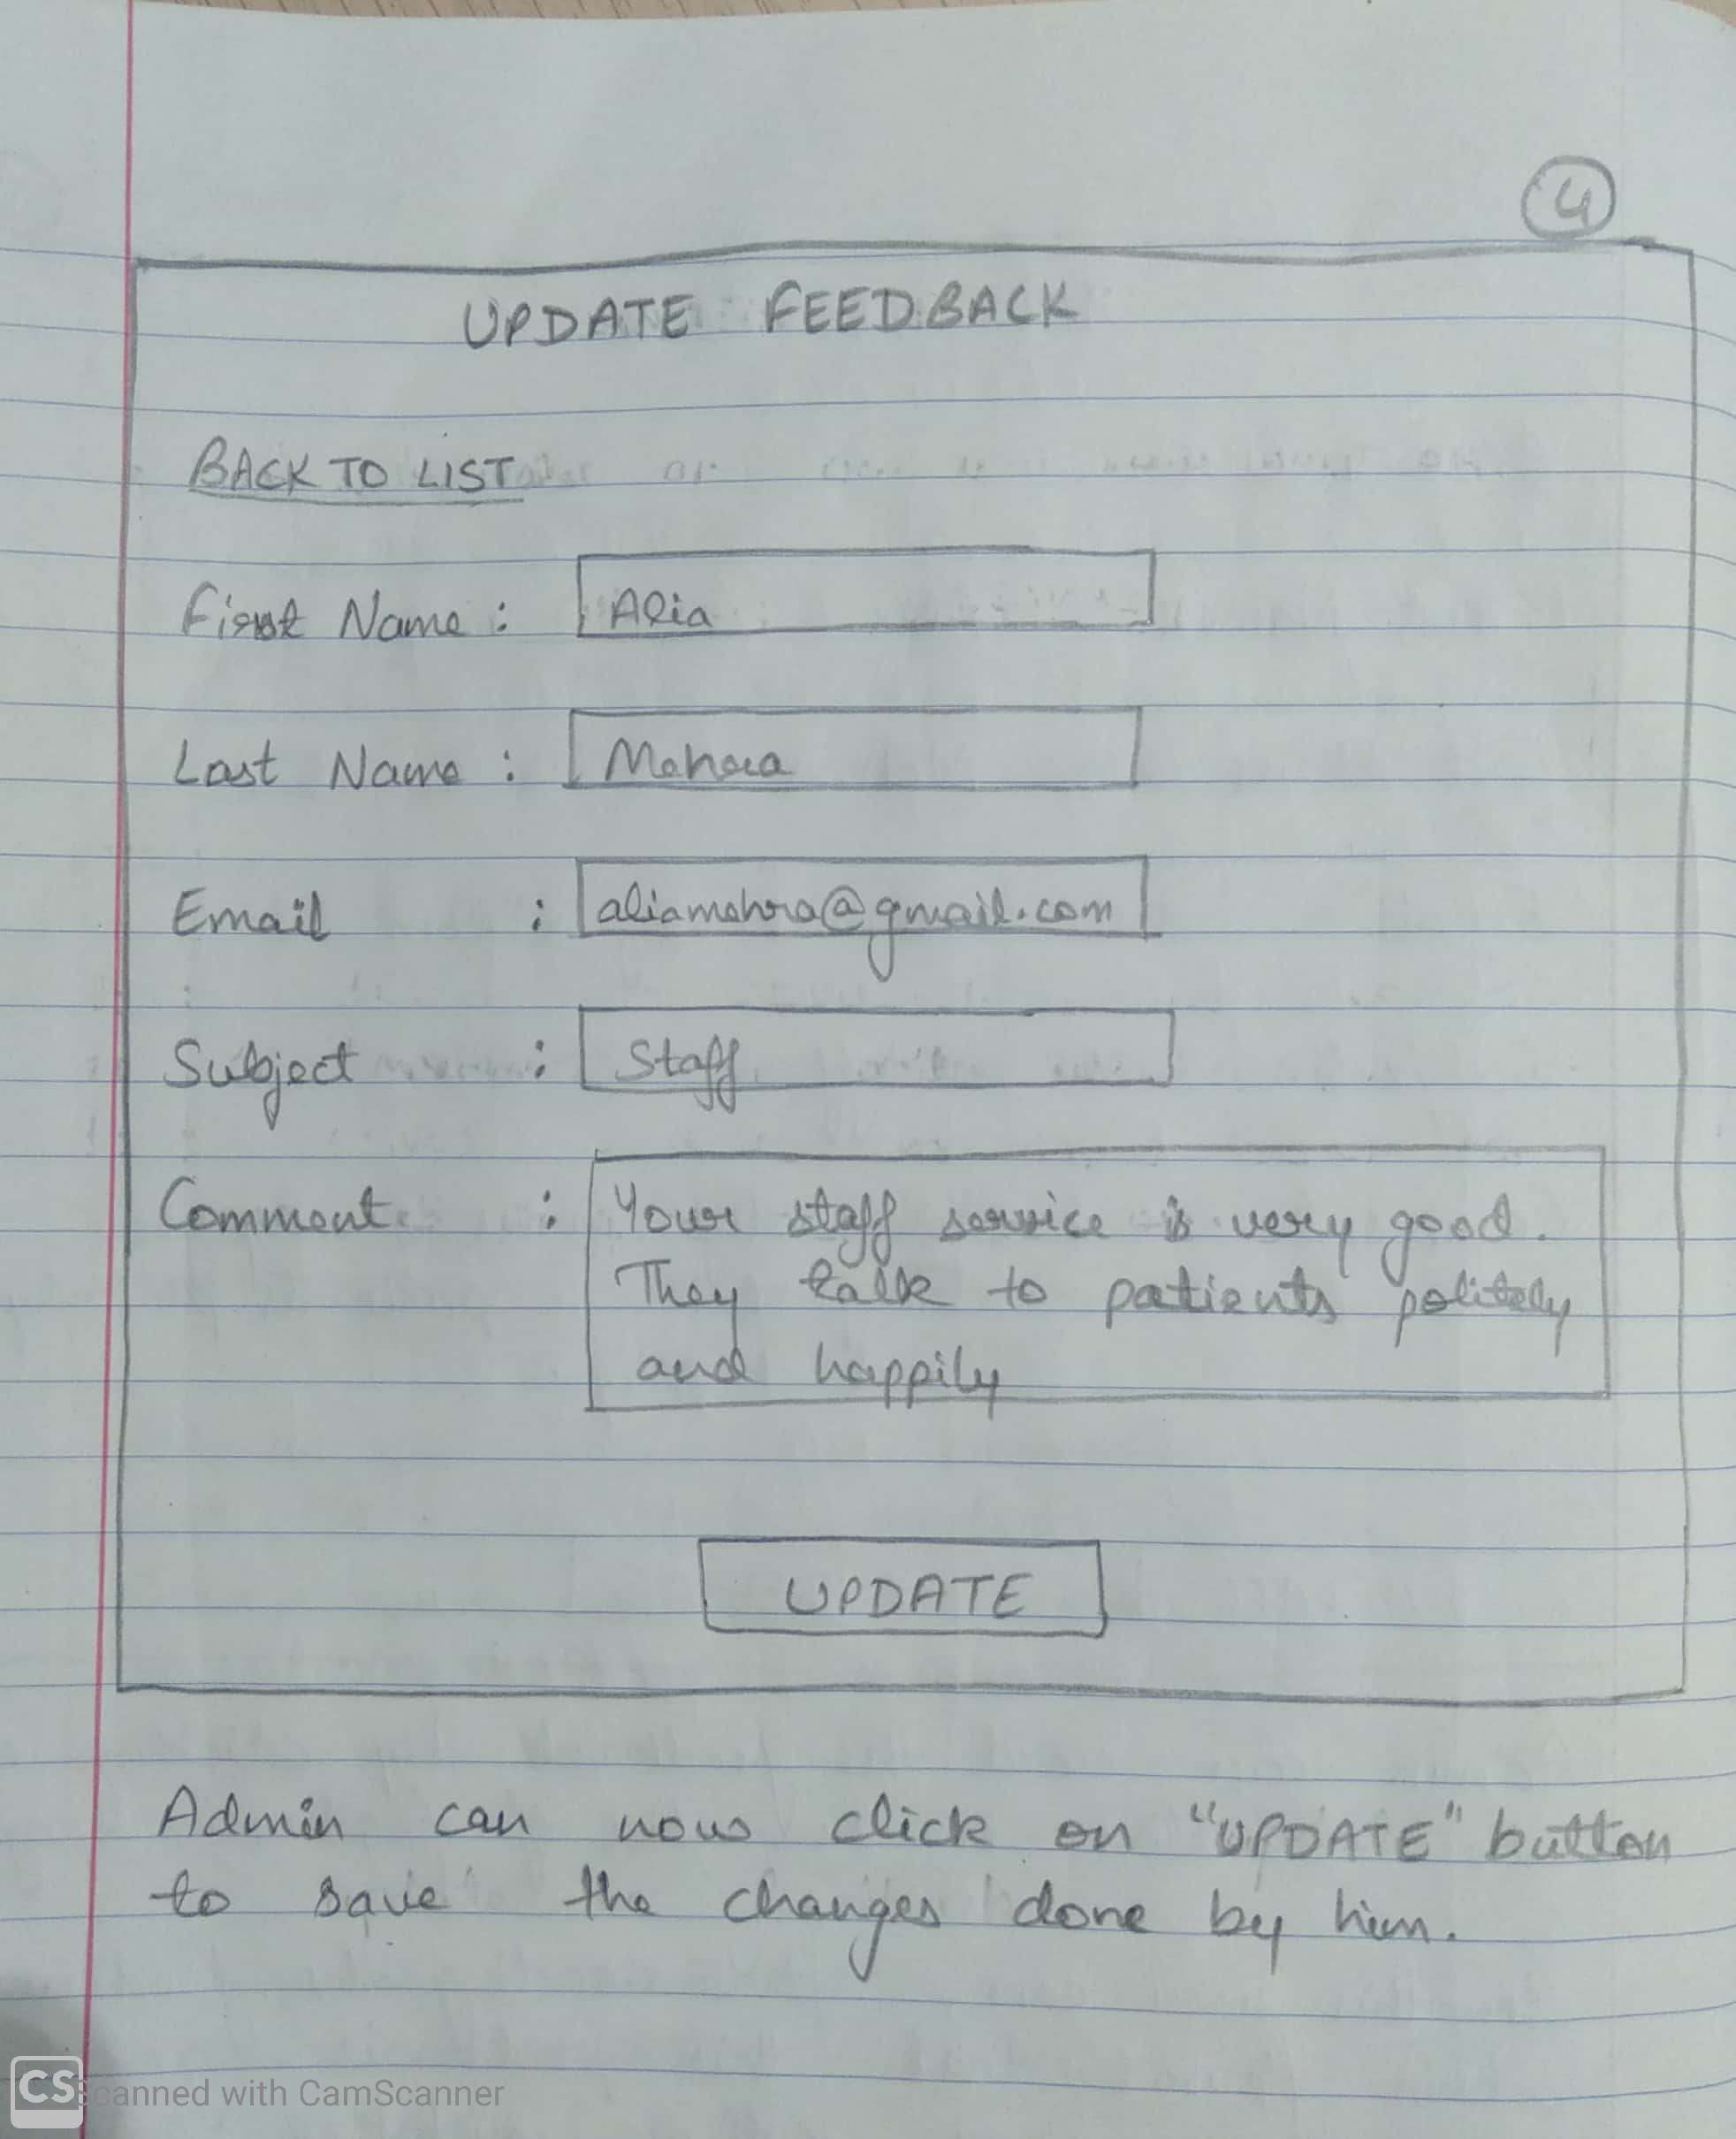 4
UPDATE FEEDBACK
BACK TO LIST
First Name : Alia
Last Name : Mehra
Email : aliamehra@gmail.com
Subject : Staff
Comment : Your staff service is very good.
They talk to patients politely
and happily
UPDATE
Admin can now click on "UPDATE" button
to save the changes done by him.
CS Scanned with CamScanner